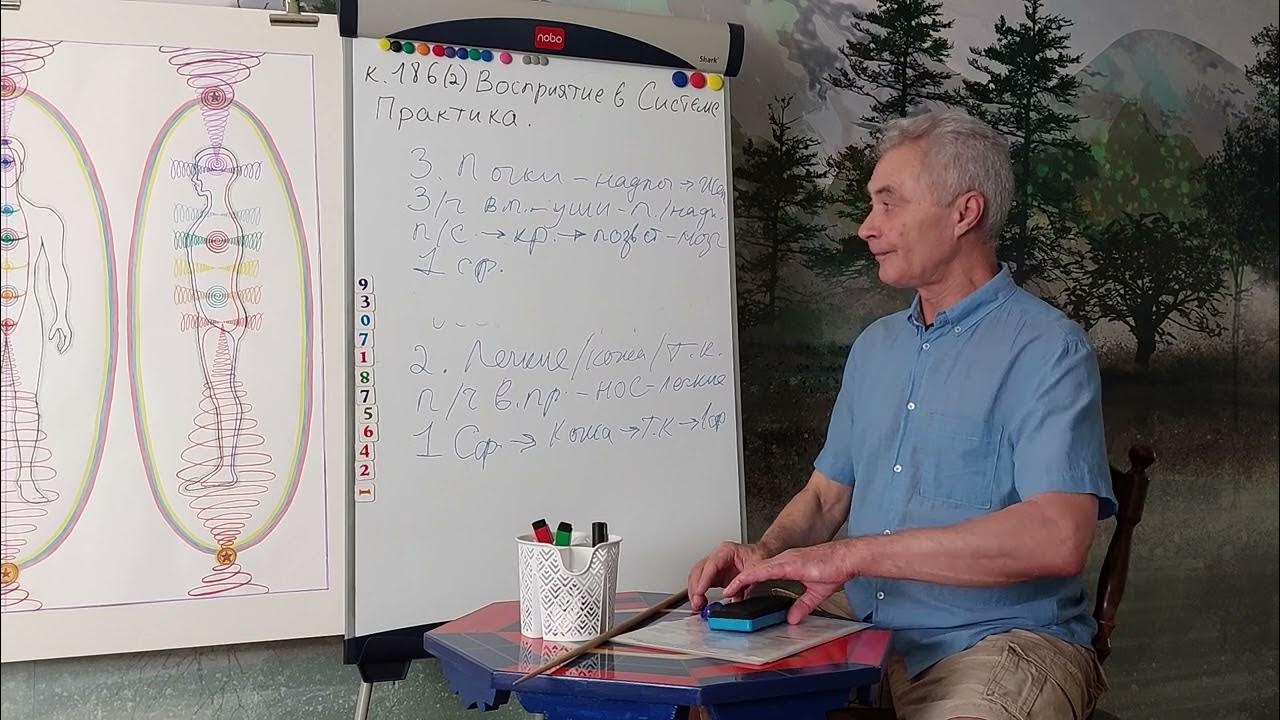 nobo
Shark
к. 186(2) Восприятие в Системе
Практика.
3. Почки – надпоч →
З/ч в.п. – уши – п./надп.
п/с. → кр. → позвот – мозг
1 сф.
2. Легкие/кожа/т.к.
п/ч в.пр. – нос – легкие
1 Сф. → Кожа → Т.К → 1 сф
9
3
0
7
1
8
7
5
6
4
2
1